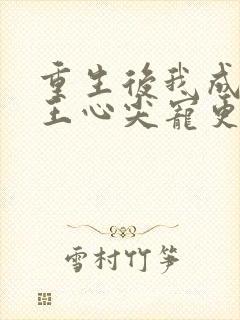 重生後我成
王心尖寵更
雪村竹笋